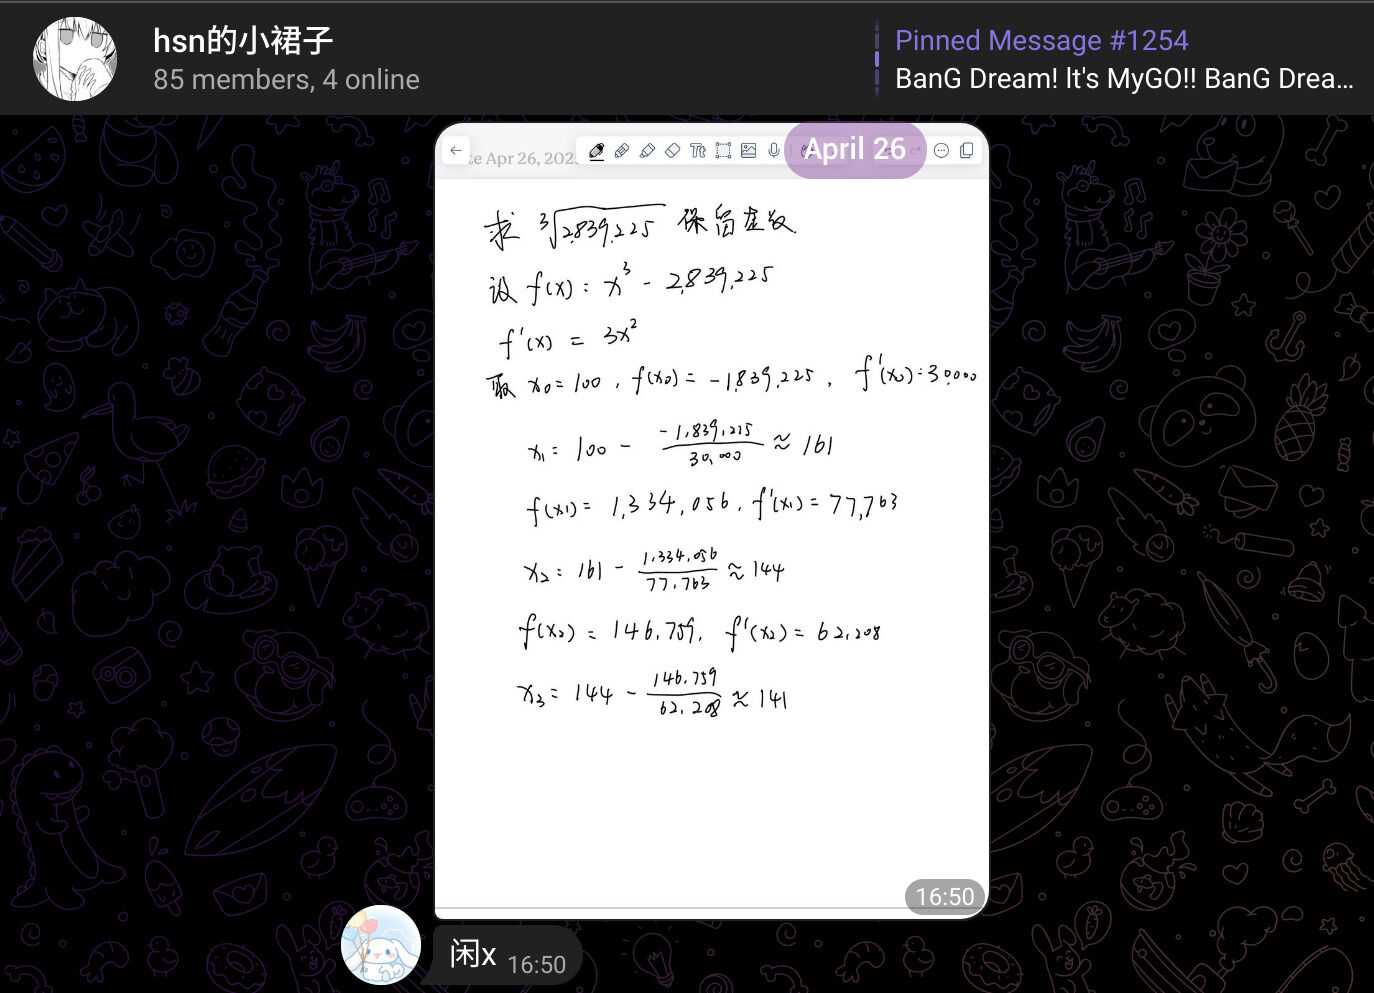 hsn的小裙子
85 members, 4 online
Pinned Message #1254
BanG Dream! It's MyGO!! BanG Drea…
te Apr 26, 202
April 26
求 ³√2,839,225 保留整数.
设 f(x) = x³ - 2,839,225
f'(x) = 3x²
取 x₀ = 100 , f(x₀) = -1,839,225 , f'(x₀) = 30,000
x₁ = 100 - -1,839,225/30,000 ≈ 161
f(x₁) = 1,334,056 , f'(x₁) = 77,763
x₂ = 161 - 1,334,056/77,763 ≈ 144
f(x₂) = 146,759 , f'(x₂) = 62,208
x₃ = 144 - 146,759/62,208 ≈ 141
16:50
闲x 16:50